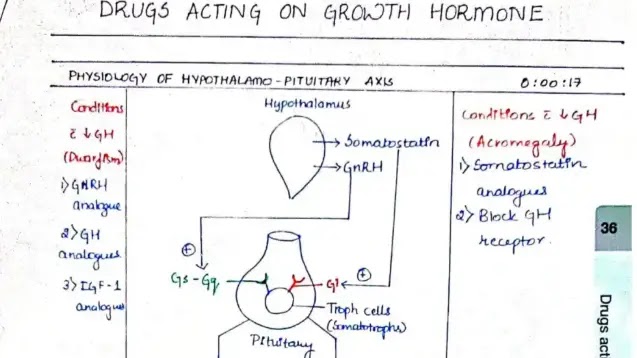 DRUGS ACTING ON GROWTH HORMONE
PHYSIOLOGY OF HYPOTHALAMO-PITUITARY AXIS
0:00:17
Conditions
c̄ ↓GH
(Dwarfism)
1) GHRH
analogue
2) GH
analogues
3) IGF-1
analogues
Hypothalamus
Somatostatin
GnRH
+
Gs - Gq
Gi
+
Troph cells
(Somatotrophs)
Pituitary
Conditions c̄ ↓GH
(Acromegaly)
1) Somatostatin
analogues
2) Block GH
receptor.
36
Drugs act